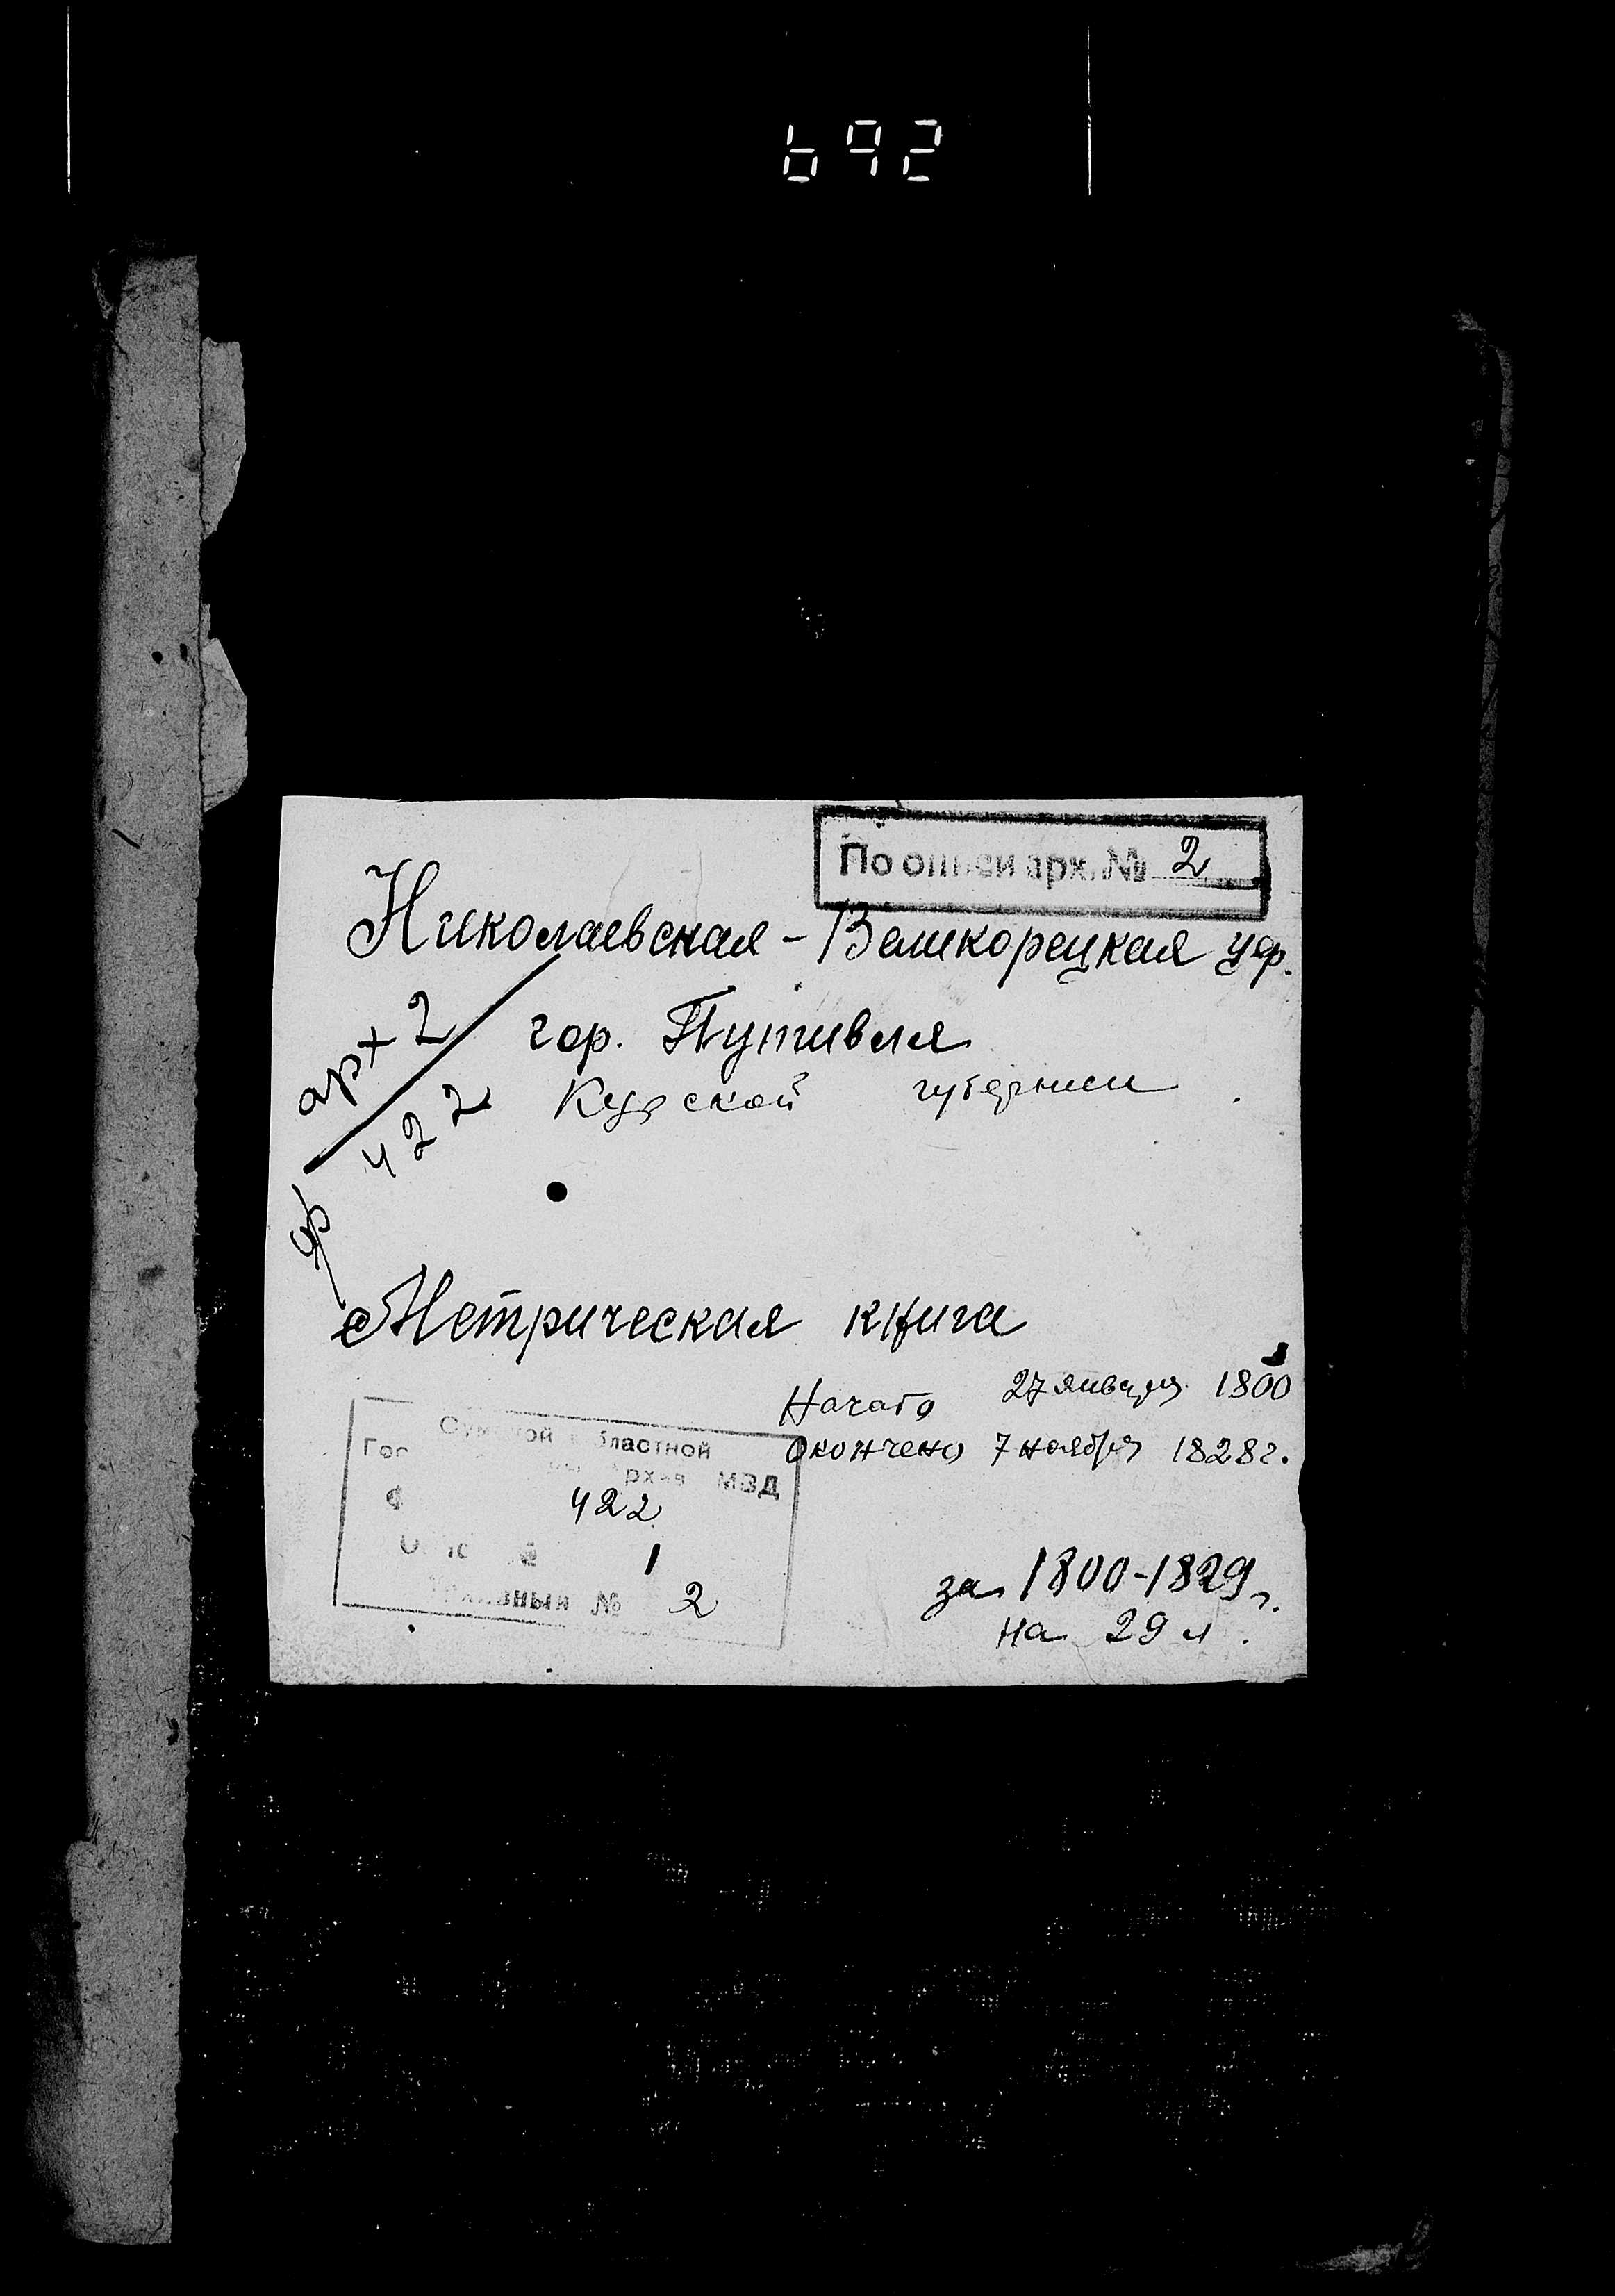 692
По описи арх. № 2
Николаевская - Великорецкая цер.
гор. Путивля
Курской губернии
арх 2
ф 422
Метрическая книга
Начато 27 января 1800
Окончено 7 ноября 1828 г.
Сумской областной
Гос архив МВД
Ф 422
Опись № 1
Архивный № 2
за 1800-1829 г.
на 29 л.